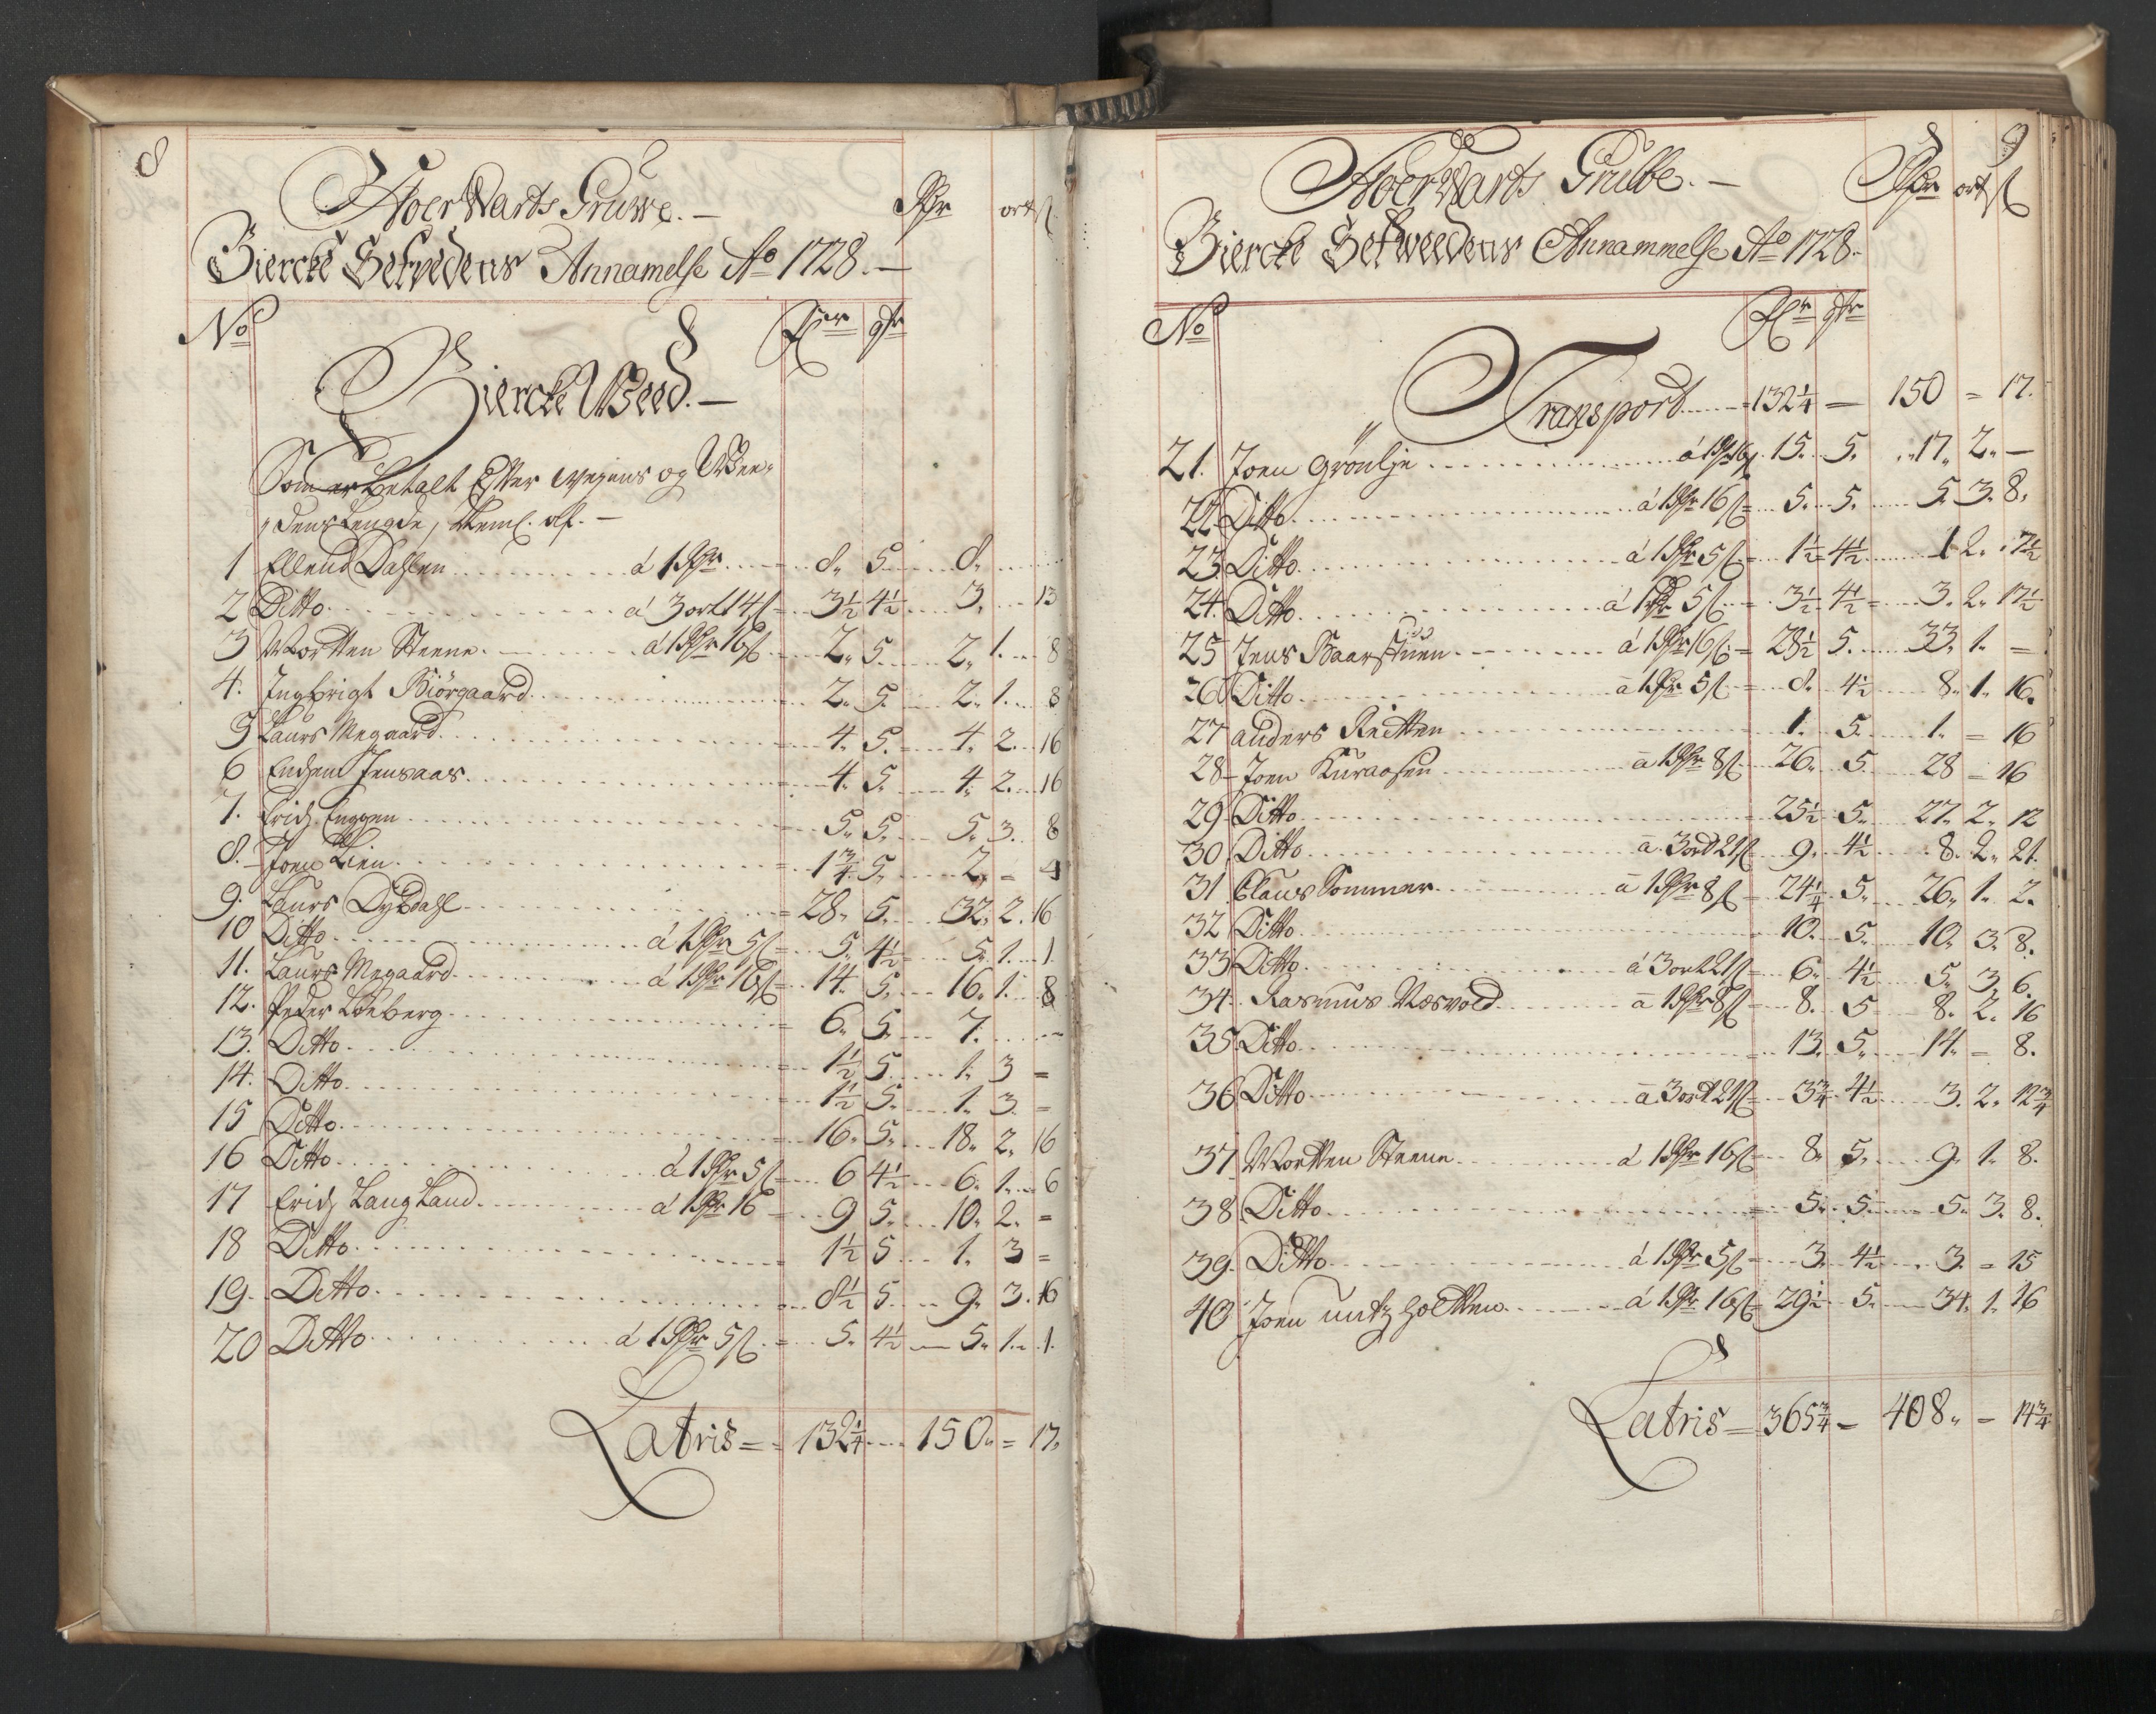 8
HoerWarts Gruwe.— Rdr ort ß
Biercke Setvedens Annamelse Ao 1728.—
No
Biercke Weed.—
Som er betalt Efter Weyens og Wee-
dens Lengde, Neml. af.—
1 Ellend Dahlen á 1 Rdr 8. 5. 8.
2 Ditto á 3 ort 14 ß 3½ 4½ 3. 13
3 Morten Steene á 1 Rdr 16 ß 2. 5. 2. 1. 8
4. Ingbrigt Biörgaard 2. 5. 2. 1. 8
5 Laurs Megaard 4. 5. 4. 2. 16
6 Jensaas 4. 5. 4. 2. 16
7. Erich Engen 5. 5. 5. 3. 8
8. Joen Lien 1¾ 5. 2. = 4
9. Laurs Dybdahl 28. 5. 32. 2. 16
10 Ditto á 1 Rdr 5 ß 5. 4½ 5. 1. 1
11. Laurs Megaard á 1 Rdr 16 ß 14. 5. 16. 1. 8
12. Peder Löeberg 6. 5. 7. —
13. Ditto 1½ 5. 1. 3 =
14. Ditto 1½ 5. 1. 3. =
15 Ditto 16. 5. 18. 2. 16
16 Ditto á 1 Rdr 5 ß 6 4½ 6. 1. 6
17 Erich LangLand á 1 Rdr 16 9 5. 10. 2. =
18 Ditto 1½ 5 1. 3 =
19. Ditto 8½ 5 9. 3. 16
20 Ditto á 1 Rdr 5 ß 5. 4½ 5. 1. 1.
Latris = 132¼ 150. = 17.
9
HoerWarts Grube.— Rdr ort ß
Biercke Setweedens Annammelse Ao 1728.
No
Transport 132¼ — 150 = 17.
21. Joen Grönlje á 1 Rdr 16 ß 15. 5. 17. 2. —
22. Ditto á 1 Rdr 16 ß 5. 5. 5. 3. 8.
23. Ditto á 1 Rdr 5 ß 1½ 4½ 1 2. 7½
24. Ditto á 1 Rdr 5 ß 3½ 4½ 3. 2. 17½
25 Jens Baarstuen á 1 Rdr 16 ß 28½ 5. 33. 1. =
26 Ditto á 1 Rdr 5 ß 8. 4½ 8. 1. 16.
27 anders Reitten 1. 5. 1. = 16
28 Joen Kuraasen á 1 Rdr 8 ß 26. 5. 28 = 16
29. Ditto 25½ 5. 27. 2. 12
30. Ditto á 3 ort 21 ß 9. 4½ 8. 2. 21.
31 Claus Sommer á 1 Rdr 8 ß 24¼ 5. 26. 1. 2.
32 Ditto 10. 5. 10. 3. 8.
33 Ditto á 3 ort 21 ß 6. 4½ 5. 3. 6.
34. Rasmus Næsvold á 1 Rdr 8 ß 8. 5 8. 2. 16
35. Ditto 13. 5. 14. = 8.
36 Ditto á 3 ort 21 ß 3¾ 4½ 3. 2. 12¾
37 Morten Steene á 1 Rdr 16 ß 8. 5. 9. 1. 8.
38 Ditto 5. 5. 5. 3. 8.
39. Ditto á 1 Rdr 5 ß 3. 4½ 3. = 15
40 Joen á 1 Rdr 16 ß 29½ 5. 34. 1. 16
Latris = 365¾ = 408. = 14¾